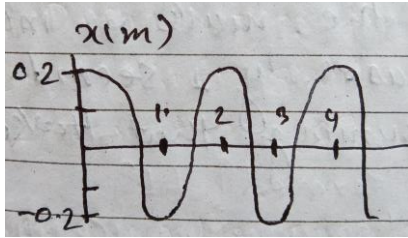 x(m)
0.2
1 2 3 4
-0.2